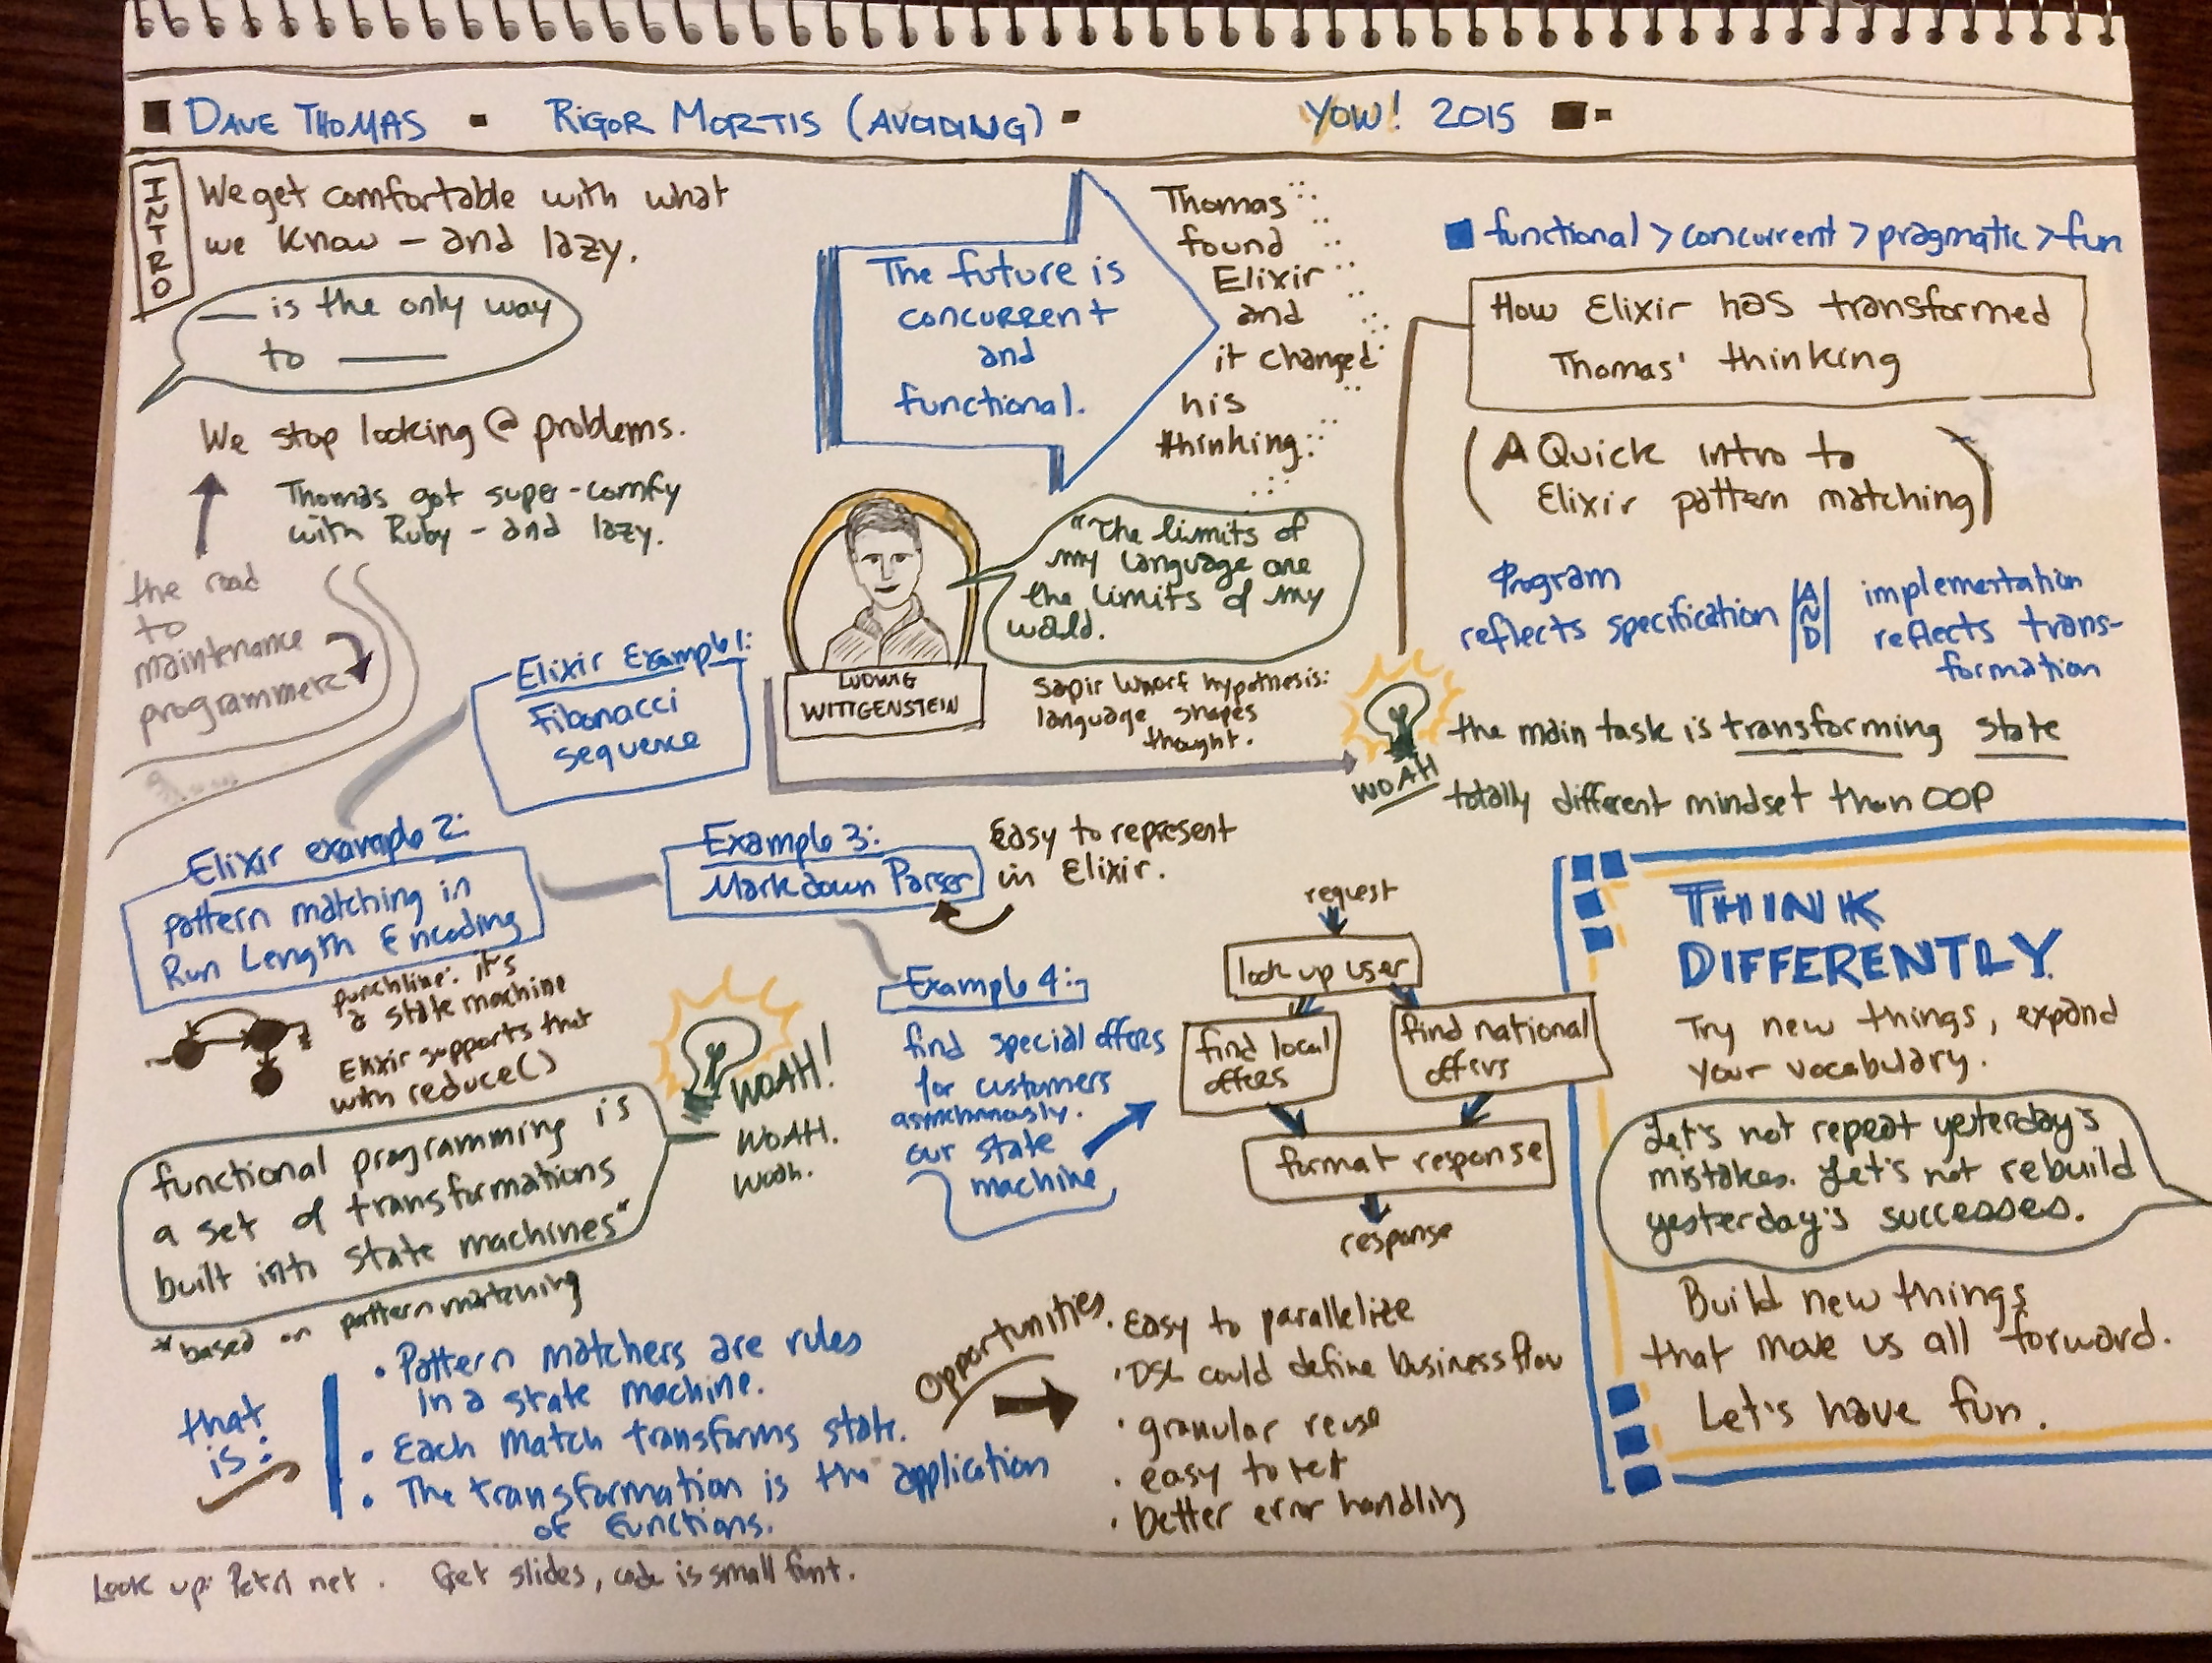 DAVE THOMAS - RIGOR MORTIS (AVOIDING) - YOW! 2015
INTRO
We get comfortable with what
we know – and lazy.
___ is the only way
to ___
We stop looking @ problems.
Thomas got super-comfy
with Ruby – and lazy.
the road
to
maintenance
programmers
The future is
concurrent
and
functional.
Thomas
found
Elixir
and
it changed
his
thinking
"The limits of
my language are
the limits of my
world.
LUDWIG
WITTGENSTEIN
Sapir Whorf hypothesis:
language shapes
thought.
functional > concurrent > pragmatic > fun
How Elixir has transformed
Thomas' thinking
(A Quick intro to
Elixir pattern matching)
Program
reflects specification
AND
implementation
reflects trans-
formation
WOAH
the main task is transforming state
totally different mindset than OOP
Elixir Example 1:
Fibonacci
sequence
Elixir example 2:
pattern matching in
Run Length Encoding
punchline: it's
a state machine
Elixir supports that
with reduce()
Example 3:
Markdown Parser
Easy to represent
in Elixir.
WOAH!
WOAH.
woah.
functional programming is
a set of transformations
built into state machines*
*based on pattern matching
Example 4:
find special offers
for customers
our state
machine
request
look up user
find local
offers
find national
offers
format response
response
that
is:
• Pattern matchers are rules
in a state machine.
• Each match transforms state.
• The transformation is the application
of functions.
Opportunities
• Easy to parallelize
• DSL could define business flow
• granular reuse
• easy to test
• better error handling
THINK
DIFFERENTLY.
Try new things, expand
your vocabulary.
Let's not repeat yesterday's
mistakes. Let's not rebuild
yesterday's successes.
Build new things
that move us all forward.
Let's have fun.
Look up: Petri net. Get slides, code is small font.